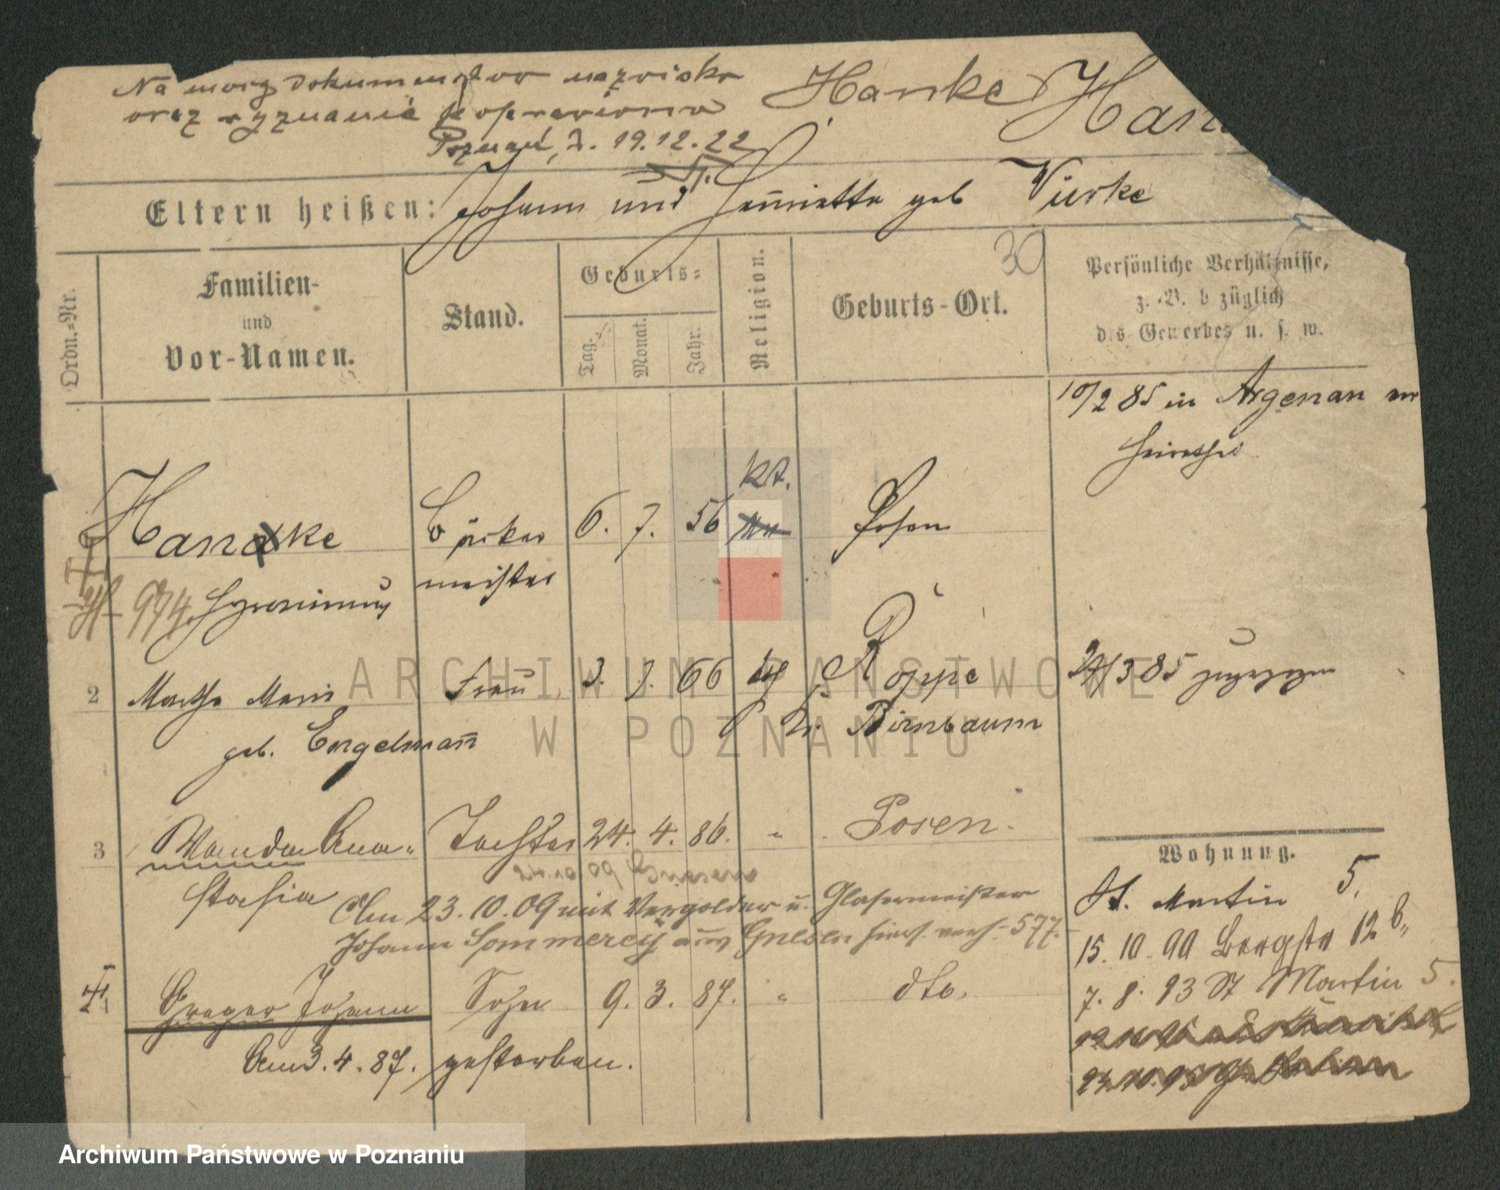 Na mocy dokumentów nazwisko
oraz wyznanie poprawiono
Poznań, d. 19.12.22
Hanke Han
Eltern heißen: Johann und Henriette geb Wirske
30
Ordn.-Nr.
Familien-
und
Vor-Namen.
Stand.
Geburts-
Tag.
Monat.
Jahr.
Religion.
Geburts-Ort.
Persönliche Verhältnisse,
z. B. bezüglich
des Gewerbes u. s. w.
10/2 85 in Argenau ver
heirathet
kt.
Hanke Bäcker 6. 7. 56 Posen
meister
974 Hyronimus
2 Martha Maria Frau 3. 7. 66 Roppe 24/3 85 zugezogen
geb. Engelmann Kr. Birnbaum
3 Wanda Ana- Tochter 24. 4. 86. " Posen.
stasia
Am 23.10.09 mit Vergolder u. Glasermeister
Johann aus Gnesen 577.
Gregor Johann Sohn 9. 3. 87. " dto.
Am 3.4.87. gestorben.
Wohnung.
St. Martin 5.
15. 10. 90 Bergstr 12b,
7. 8. 93 St Martin 5.
ARCHIWUM PAŃSTWOWE
W POZNANIU
Archiwum Państwowe w Poznaniu